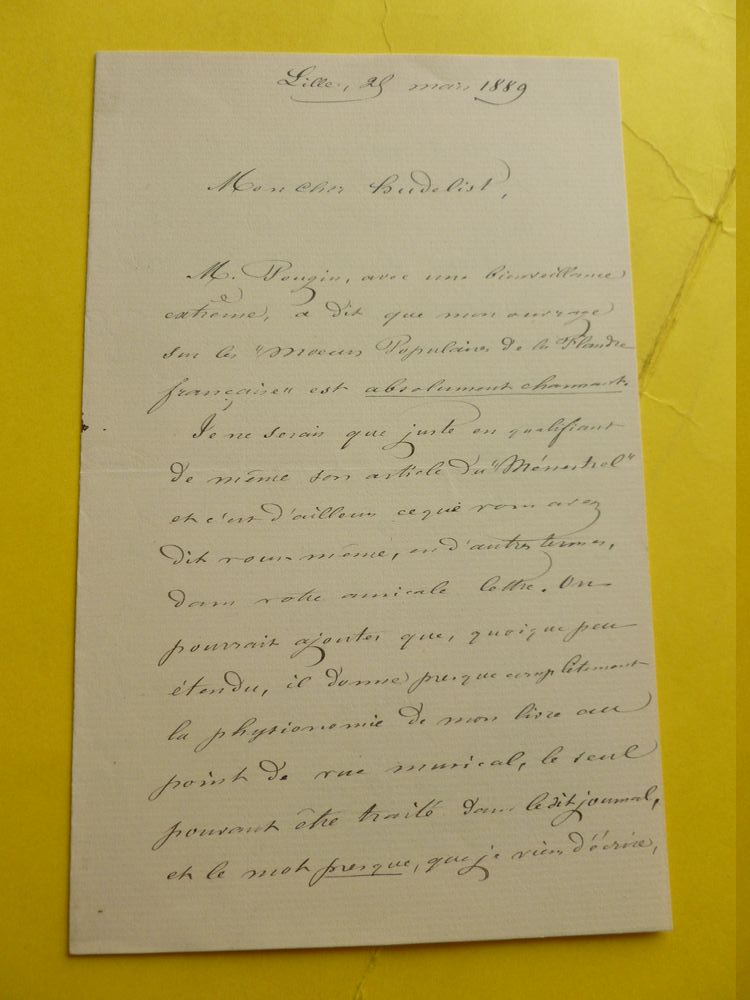 Lille, 25 mars 1889
Mon cher Hudelist,
M. Pougin, avec une bienveillance
extrême, a dit que mon ouvrage
sur les "Moeurs Populaires de la Flandre
française" est absolument charmant.
Je ne serais que juste en qualifiant
de même son article du "Ménestrel"
et c'est d'ailleurs ce que vous avez
dit vous-même, en d'autres termes,
dans votre amicale lettre. On
pourrait ajouter que, quoique peu
étendu, il donne presque complètement
la physionomie de mon livre au
point de vue musical, le seul
pouvant être traité dans le dit journal,
et le mot presque, que je viens d'écrire,